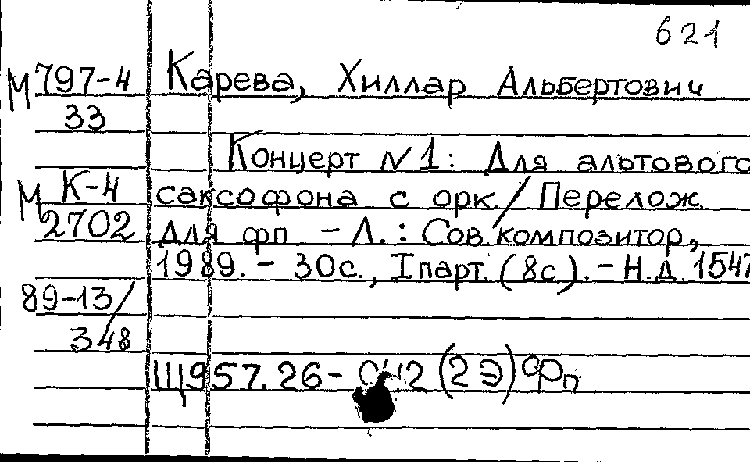 621
М 797-4 Карева, Хиллар Альбертович
33
Концерт N 1: Для альтового
М К-4 саксофона с орк. / Перелож.
2702 для фп. - Л.: Сов. композитор,
1989. - 30с., 1парт. (8с). - Н.д. 1547
89-13/
348
Щ957.26- (2Э) фп